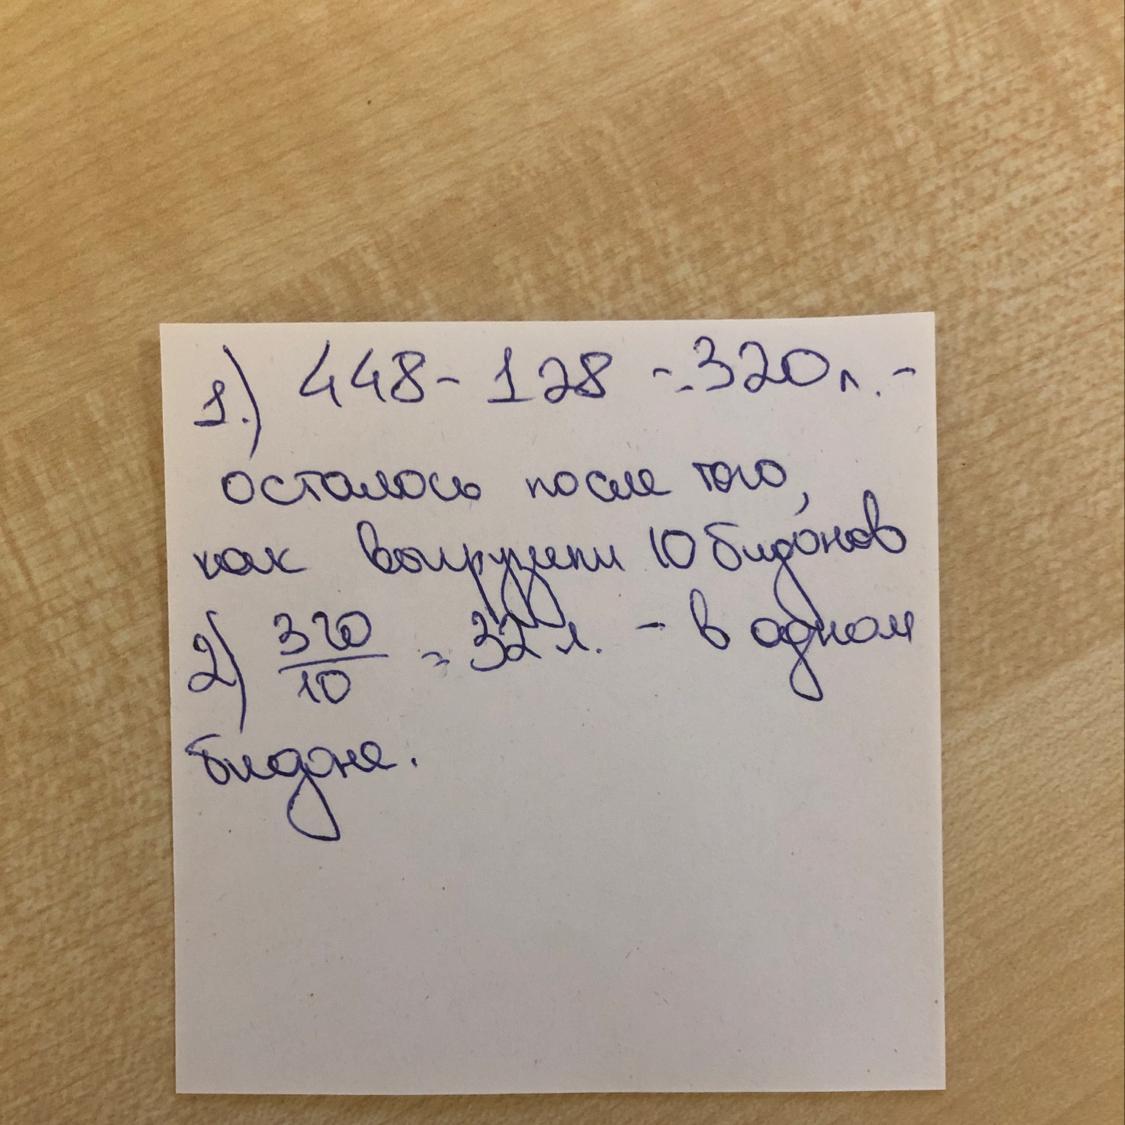 1.) 448 - 128 = 320 л. -
осталось после того,
как выгрузили 10 бидонов
2) 320/10 = 32 л. - в одном
бидоне.